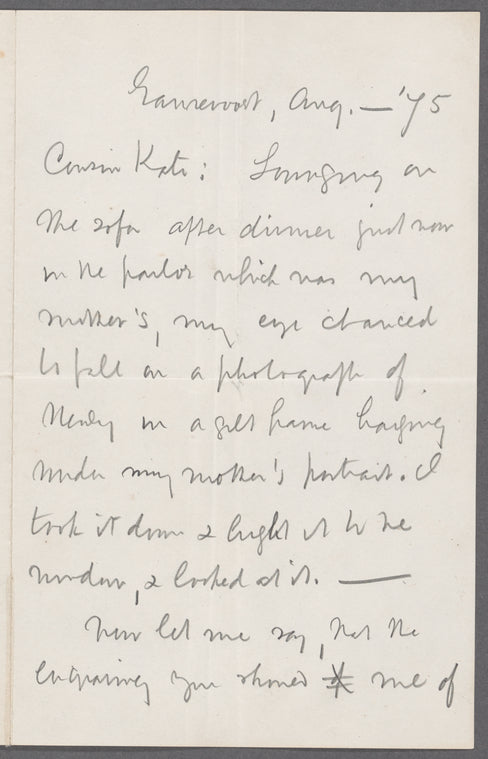 Gansevoort, Aug. — '75
Cousin Kate: Lounging on
the sofa after dinner just now
in the parlor which was my
mother's, my eye chanced
to fall on a photograph of
Henry in a gilt frame hanging
under my mother's portrait. I
took it down & brought it to the
window, & looked at it. —
Now let me say, that the
engraving you showed me of